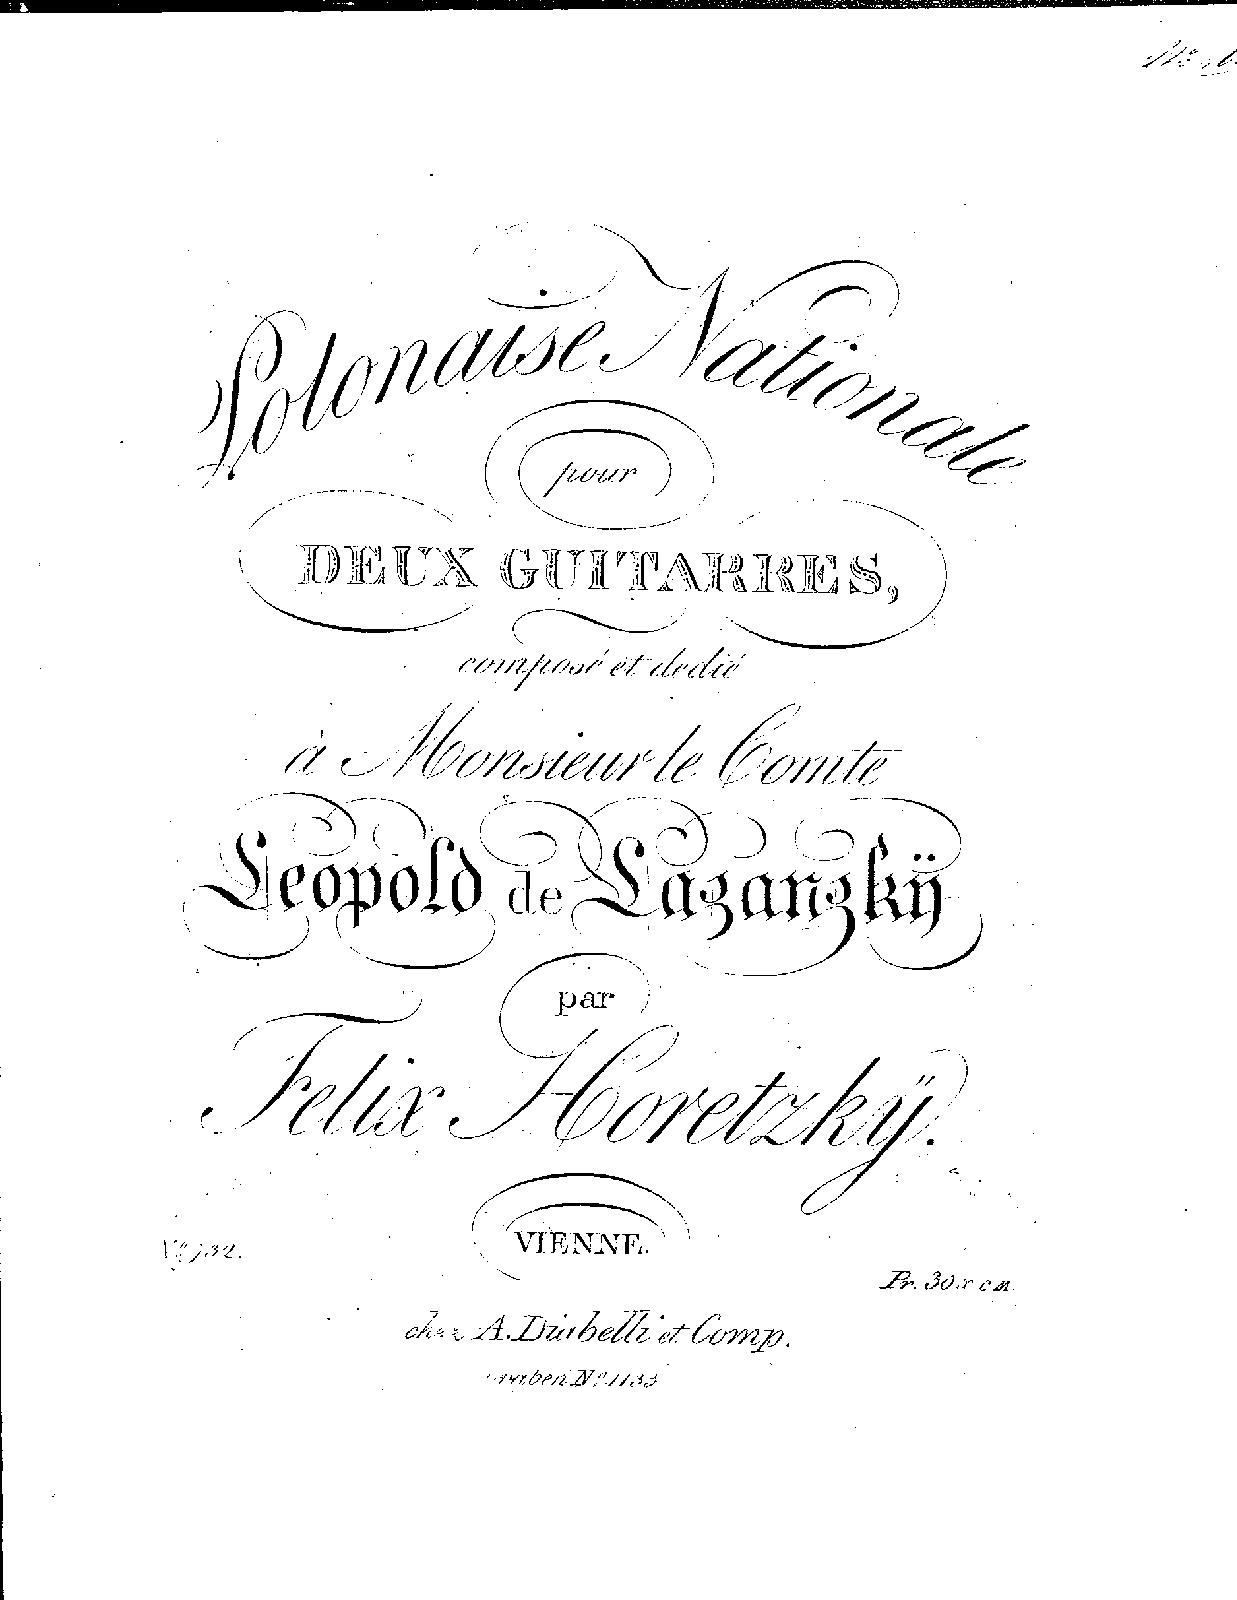 Polonaise Nationale
pour
DEUX GUITARRES,
composé et dedié
à Monsieur le Comte
Leopold de Lazanzkÿ
par
Felix Horetzkÿ.
VIENNE.
Pr. 30 x c m
chez A. Diabelli et Comp.
Graben Nº 1133